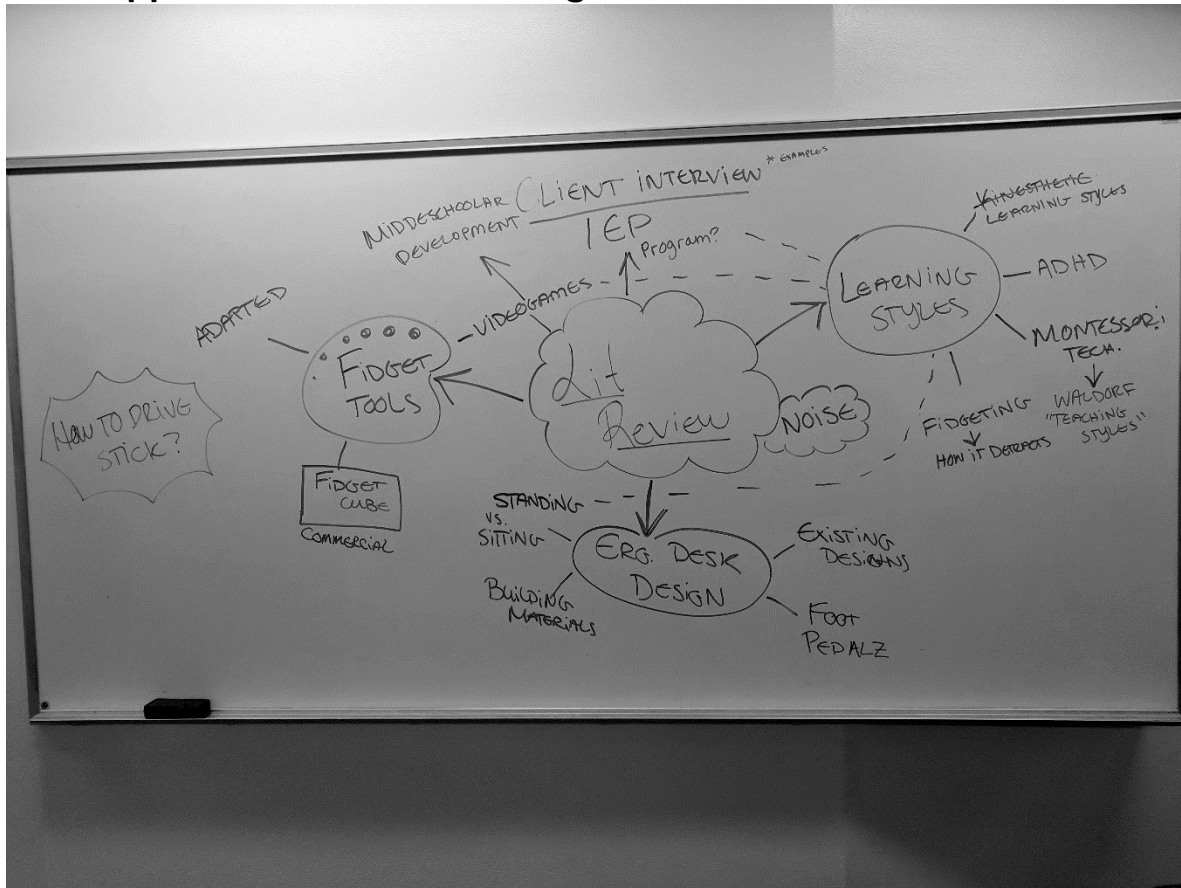 * EXAMPLES
CLIENT INTERVIEW
MIDDESCHOOLAR
DEVELOPMENT
IEP
Program?
KINESTHETIC
LEARNING STYLES
LEARNING
STYLES
ADHD
MONTESSORI
TECH.
WALDORF
"TEACHING
STYLES"
FIDGETING
HOW IT DETRACTS
ADAPTED
VIDEOGAMES
FIDGET
TOOLS
FIDGET
CUBE
COMMERCIAL
HOW TO DRIVE
STICK?
Lit
Review
NOISE
STANDING
VS.
SITTING
ERG. DESK
DESIGN
EXISTING
DESIGNS
BUILDING
MATERIALS
FOOT
PEDALZ